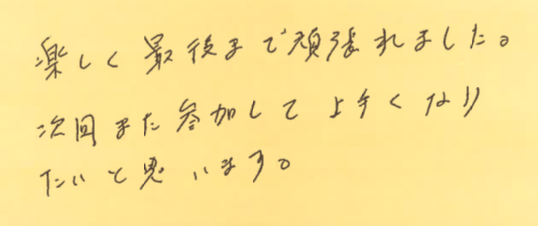 楽しく最後まで頑張れました。
次回また参加して上手くなり
たいと思います。